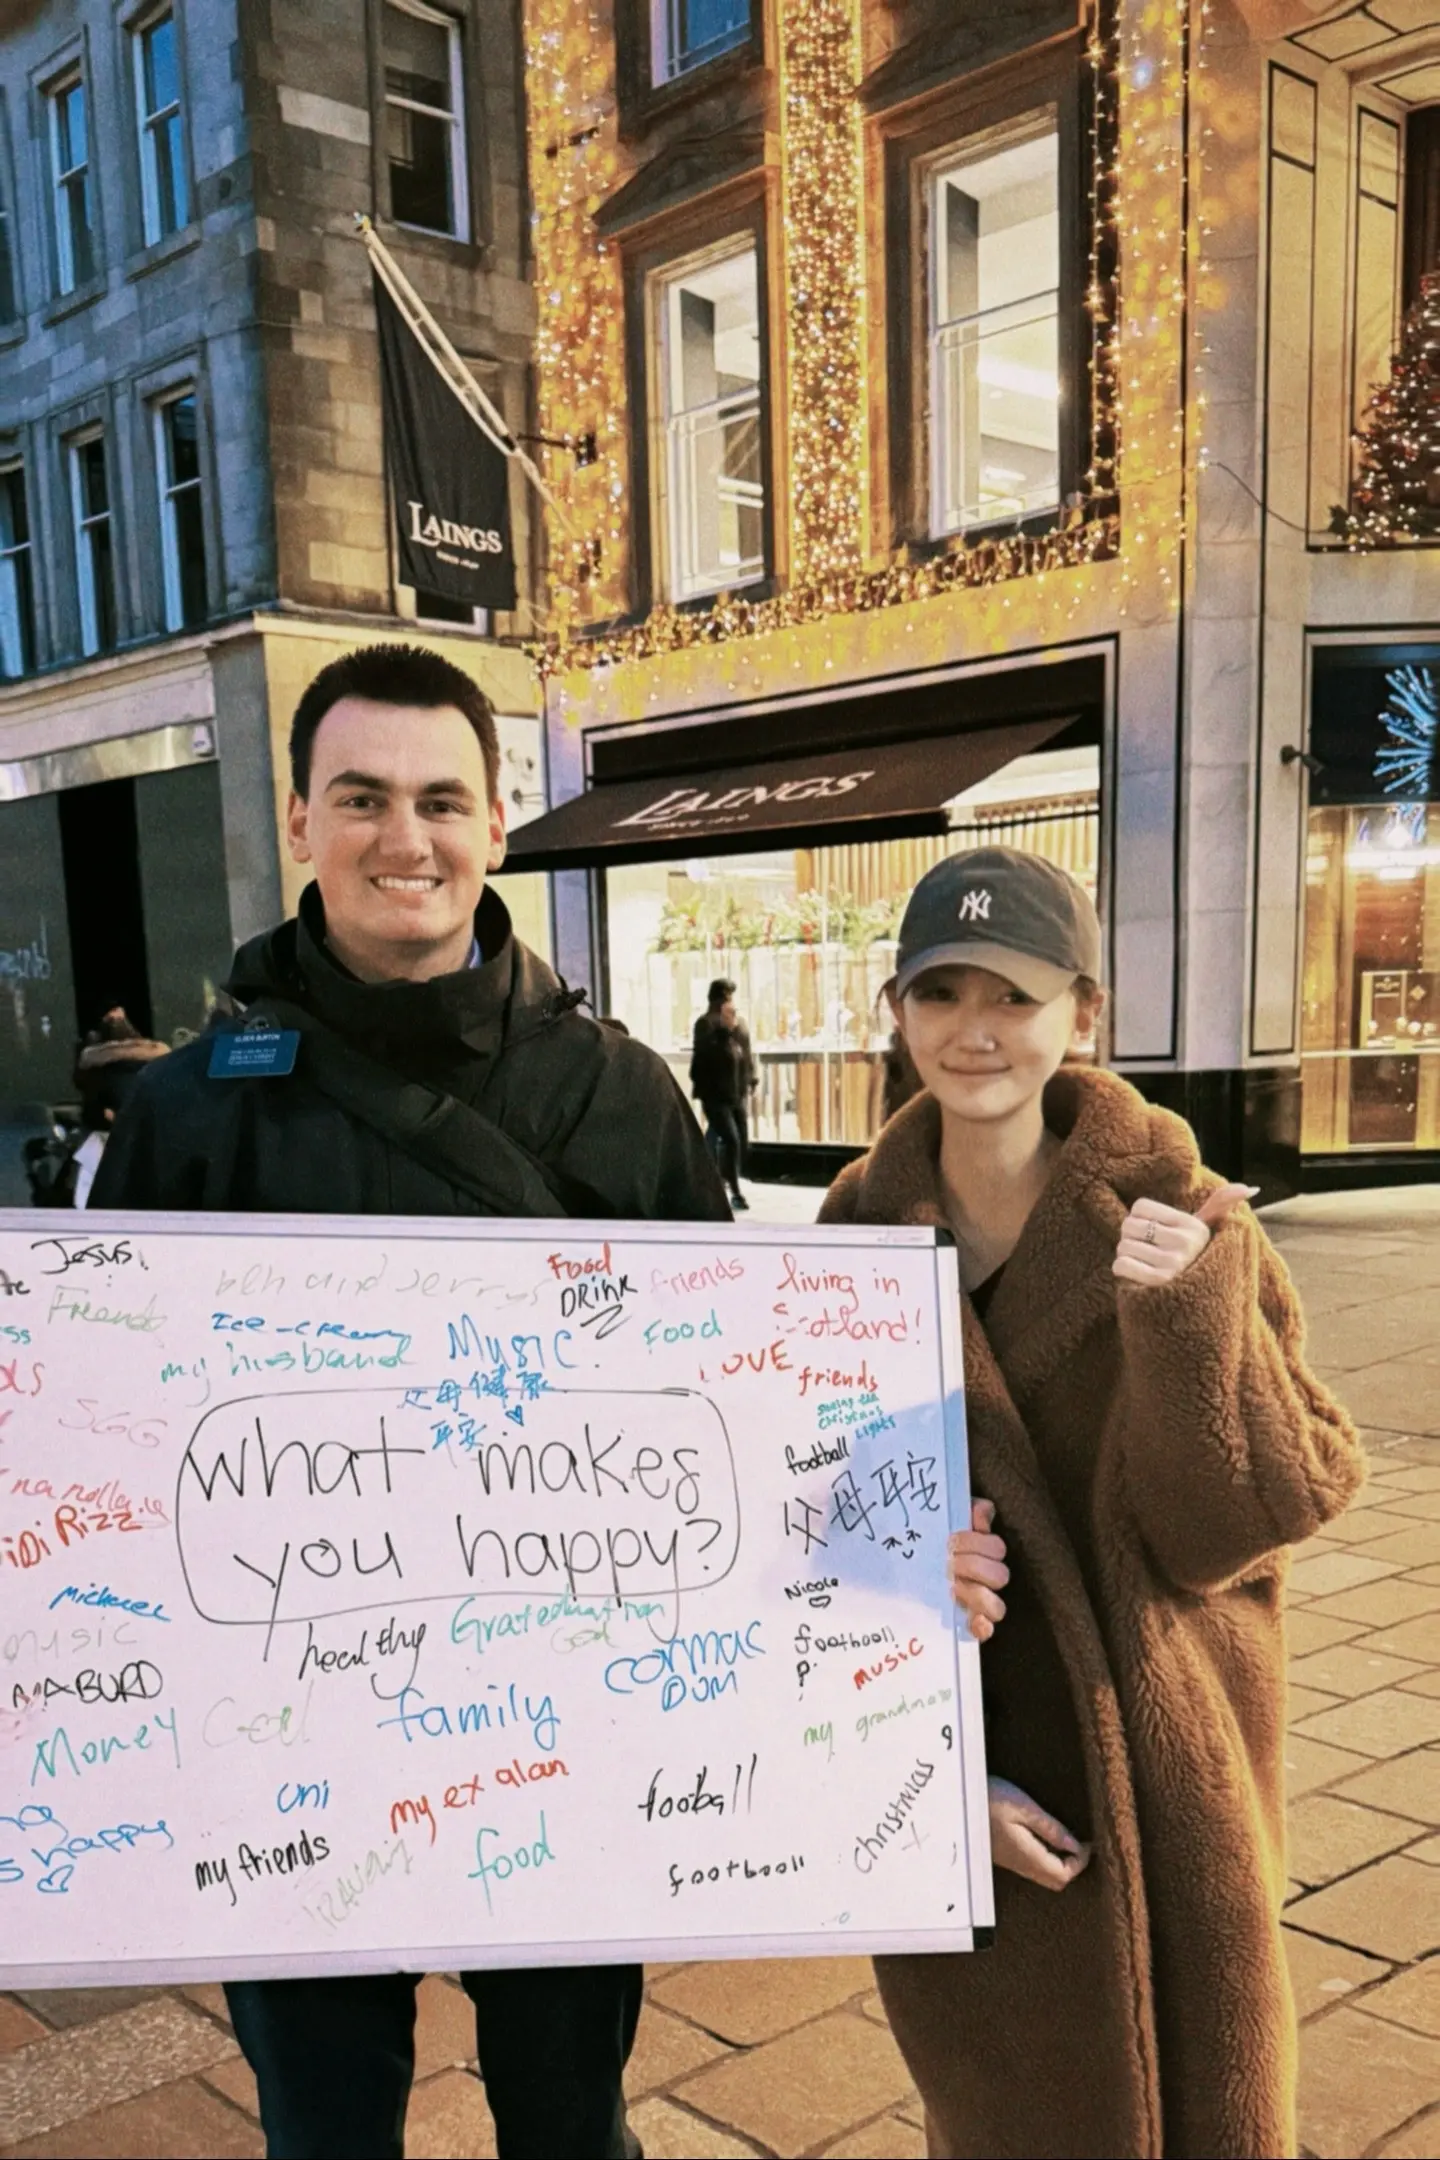 LAINGS
LAINGS
NY
ELDER BURTON
Jesus!
Friends
ben and Jerrys
Food
DRINK
friends
living in
Scotland!
Ice-cream
my husband
Music.
Food
LOVE
friends
seeing the
Christmas
lights
父母健康
平安
SGG
what makes
you happy?
football
父母平安
Rizz
music
Nicole
healthy
God
cormac
DUM
football
?
music
my grandmaw
Money
God
family
uni
my ex alan
fooball
Christmas
happy
my friends
food
football